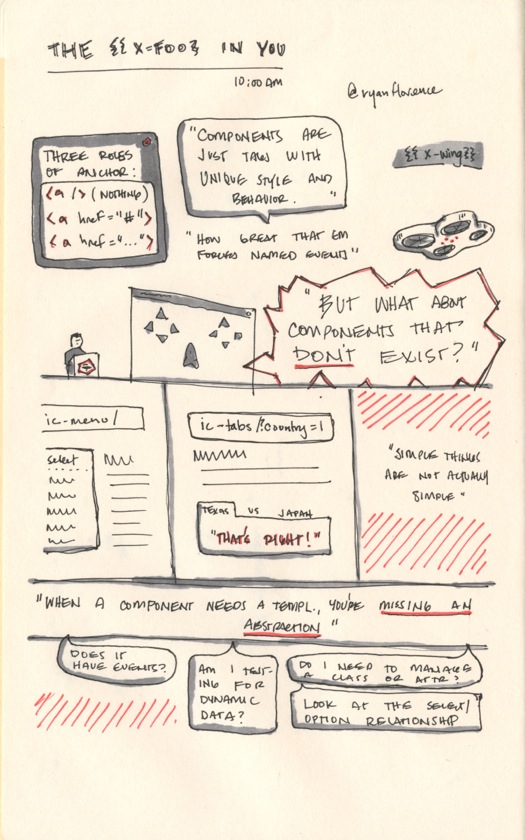 THE {{X-FOO}} IN YOU
10:00 AM
@ryanflorence
THREE ROLES
OF ANCHOR:
<a /> (NOTHING)
<a href="#">
<a href="...">
"COMPONENTS ARE
JUST TAGS WITH
UNIQUE STYLE AND
BEHAVIOR. "
"HOW GREAT THAT EM
FORCES NAMED EVENTS"
{{ X-wing}}
"BUT WHAT ABOUT
COMPONENTS THAT
DON'T EXIST?"
ic-menu/
select
ic-tabs/?country=1
TEXAS US JAPAN
"THAT'S RIGHT!"
"SIMPLE THINGS
ARE NOT ACTUALLY
SIMPLE"
"WHEN A COMPONENT NEEDS A TEMPL., YOU'RE MISSING AN
ABSTRACTION "
DOES IT
HAVE EVENTS?
AM I TEST-
ING FOR
DYNAMIC
DATA?
DO I NEED TO MANAGE
A CLASS OR ATTR?
LOOK AT THE SELECT/
OPTION RELATIONSHIP